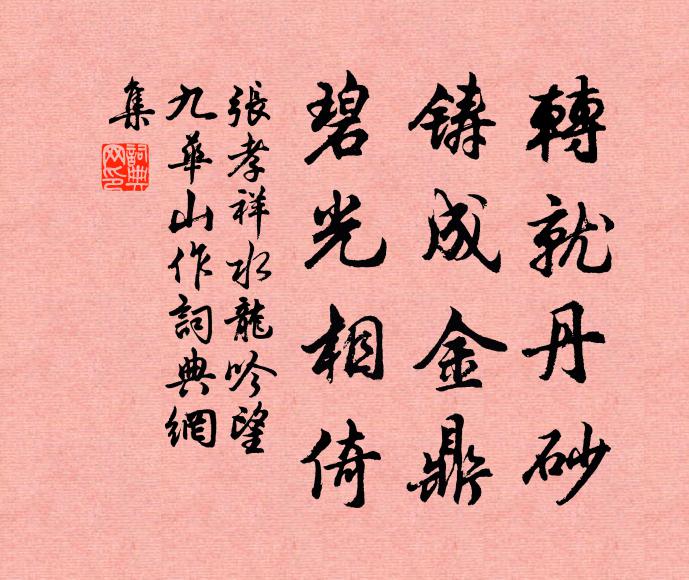 轉就丹砂
铸成金鼎
碧光相倚
張孝祥水龍吟望
九華山作詞典網
集
詞典
网印